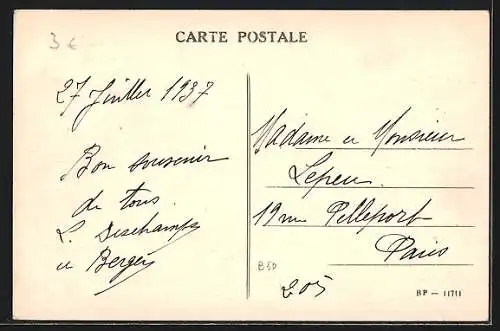 3 €
CARTE POSTALE
27 Juillet 1937
Bon souvenir
de tous
L. Deschamps
et Berger
Madame et Monsieur
Lepeu
19 rue Pelleport
Paris
B50
205
BP — 11711